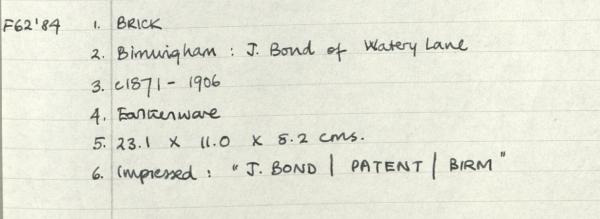 F62'84 1. BRICK
2. Birmingham : J. Bond of Watery Lane
3. c1871 - 1906
4. Earthenware
5. 23.1 x 11.0 x 8.2 cms.
6. Impressed : "J. BOND | PATENT | BIRM"